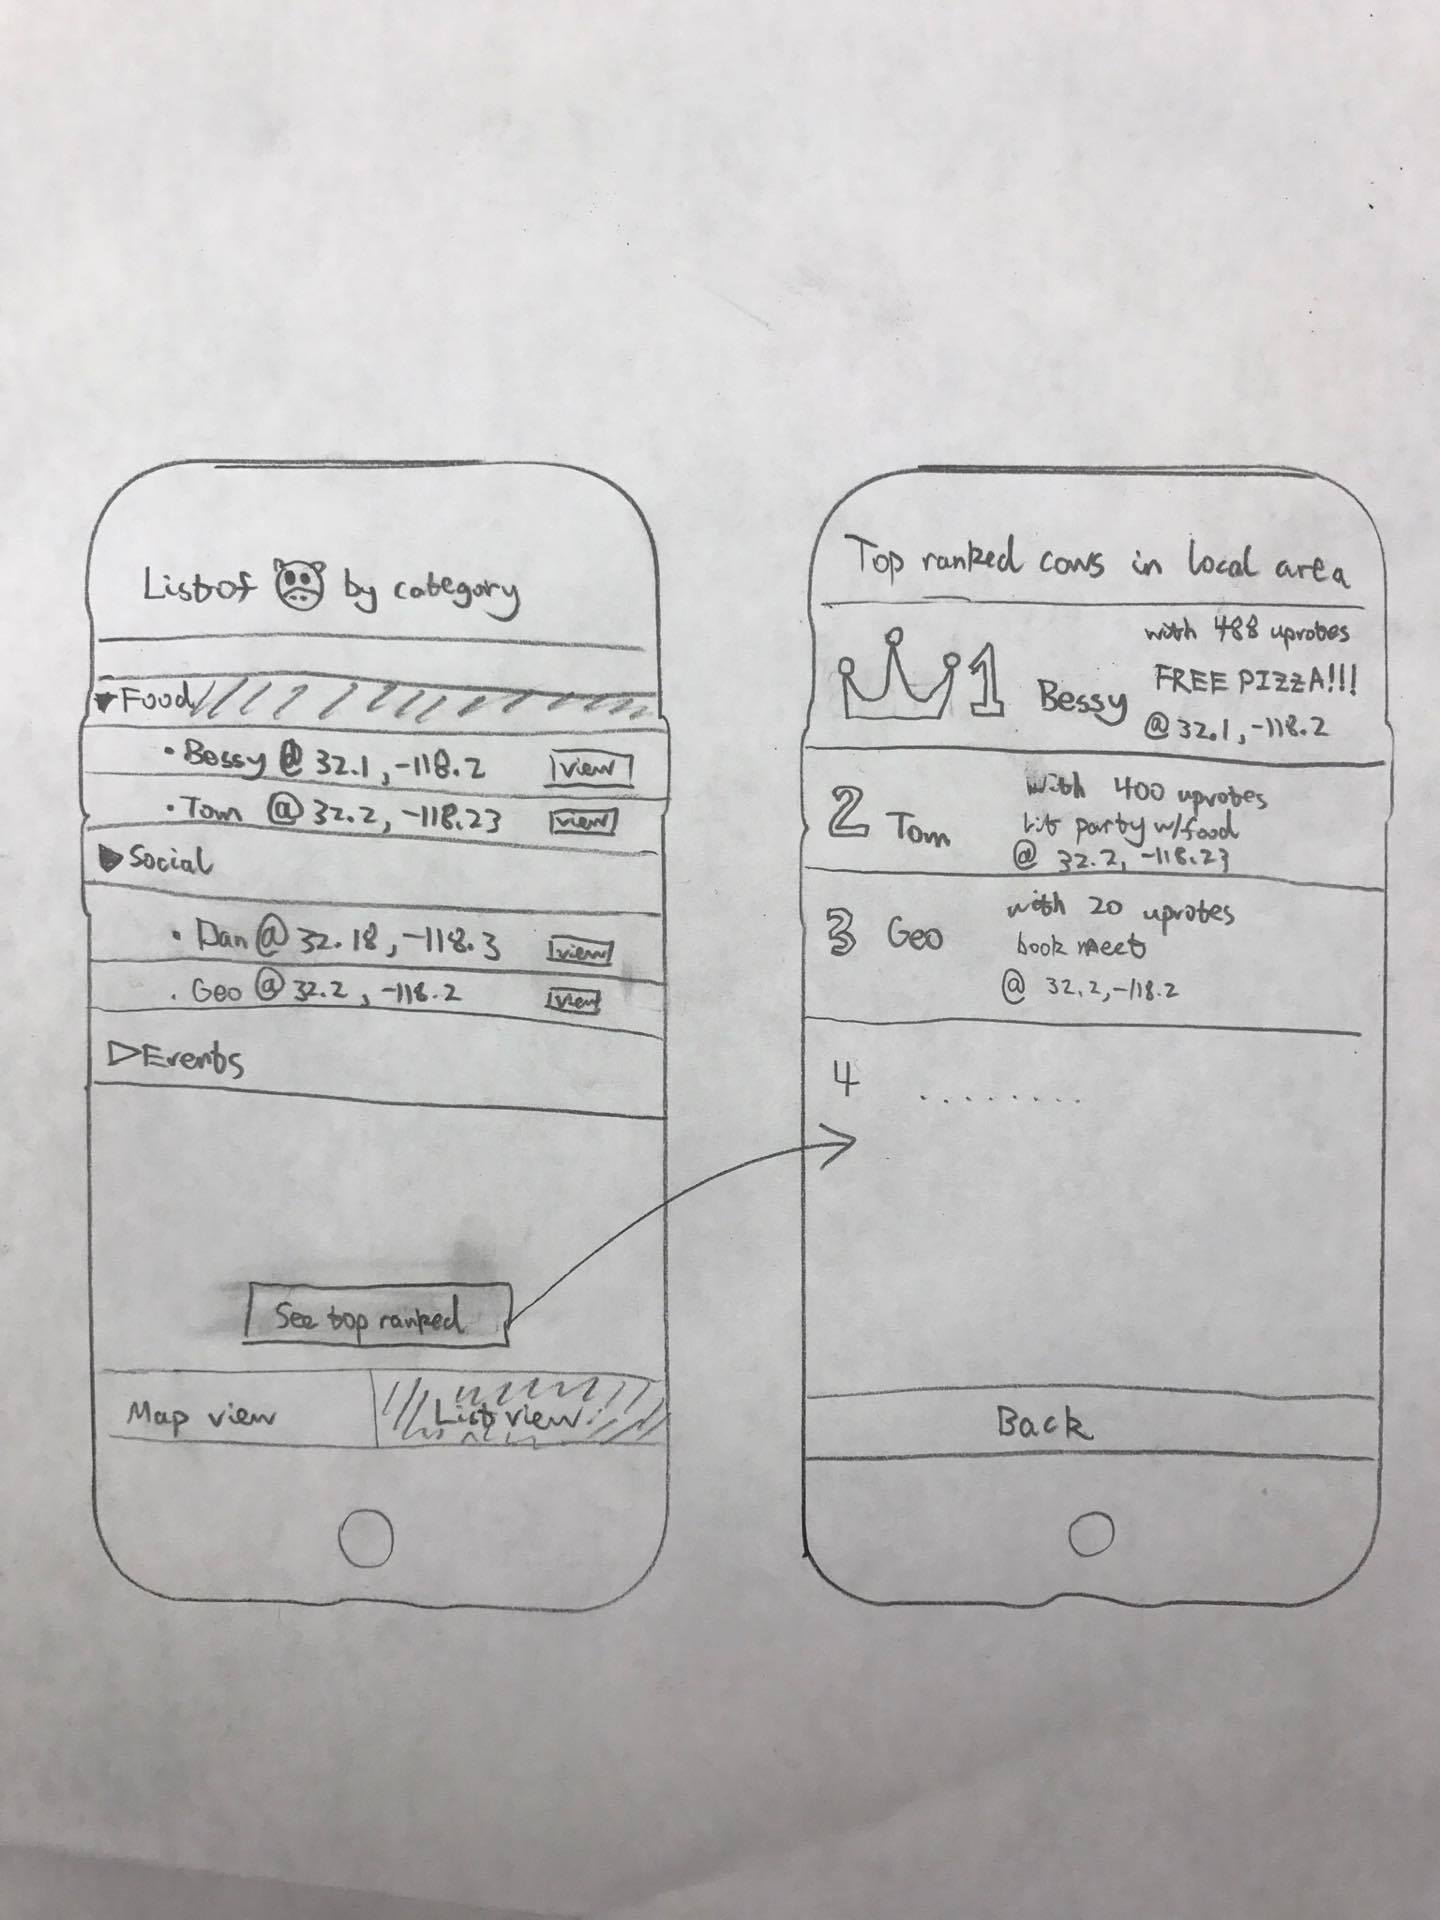 List of by category
Food
• Bessy @ 32.1, -118.2 view
• Tom @ 32.2, -118.23 view
Social
• Dan @ 32.18, -118.3 view
• Geo @ 32.2, -118.2 view
Events
See top ranked
Map view List view
Top ranked cows in local area
1 Bessy
with 488 upvotes
FREE PIZZA!!!
@ 32.1, -118.2
2 Tom
with 400 upvotes
lit party w/food
@ 32.2, -118.23
3 Geo
with 20 upvotes
book meet
@ 32.2, -118.2
4 ........
Back